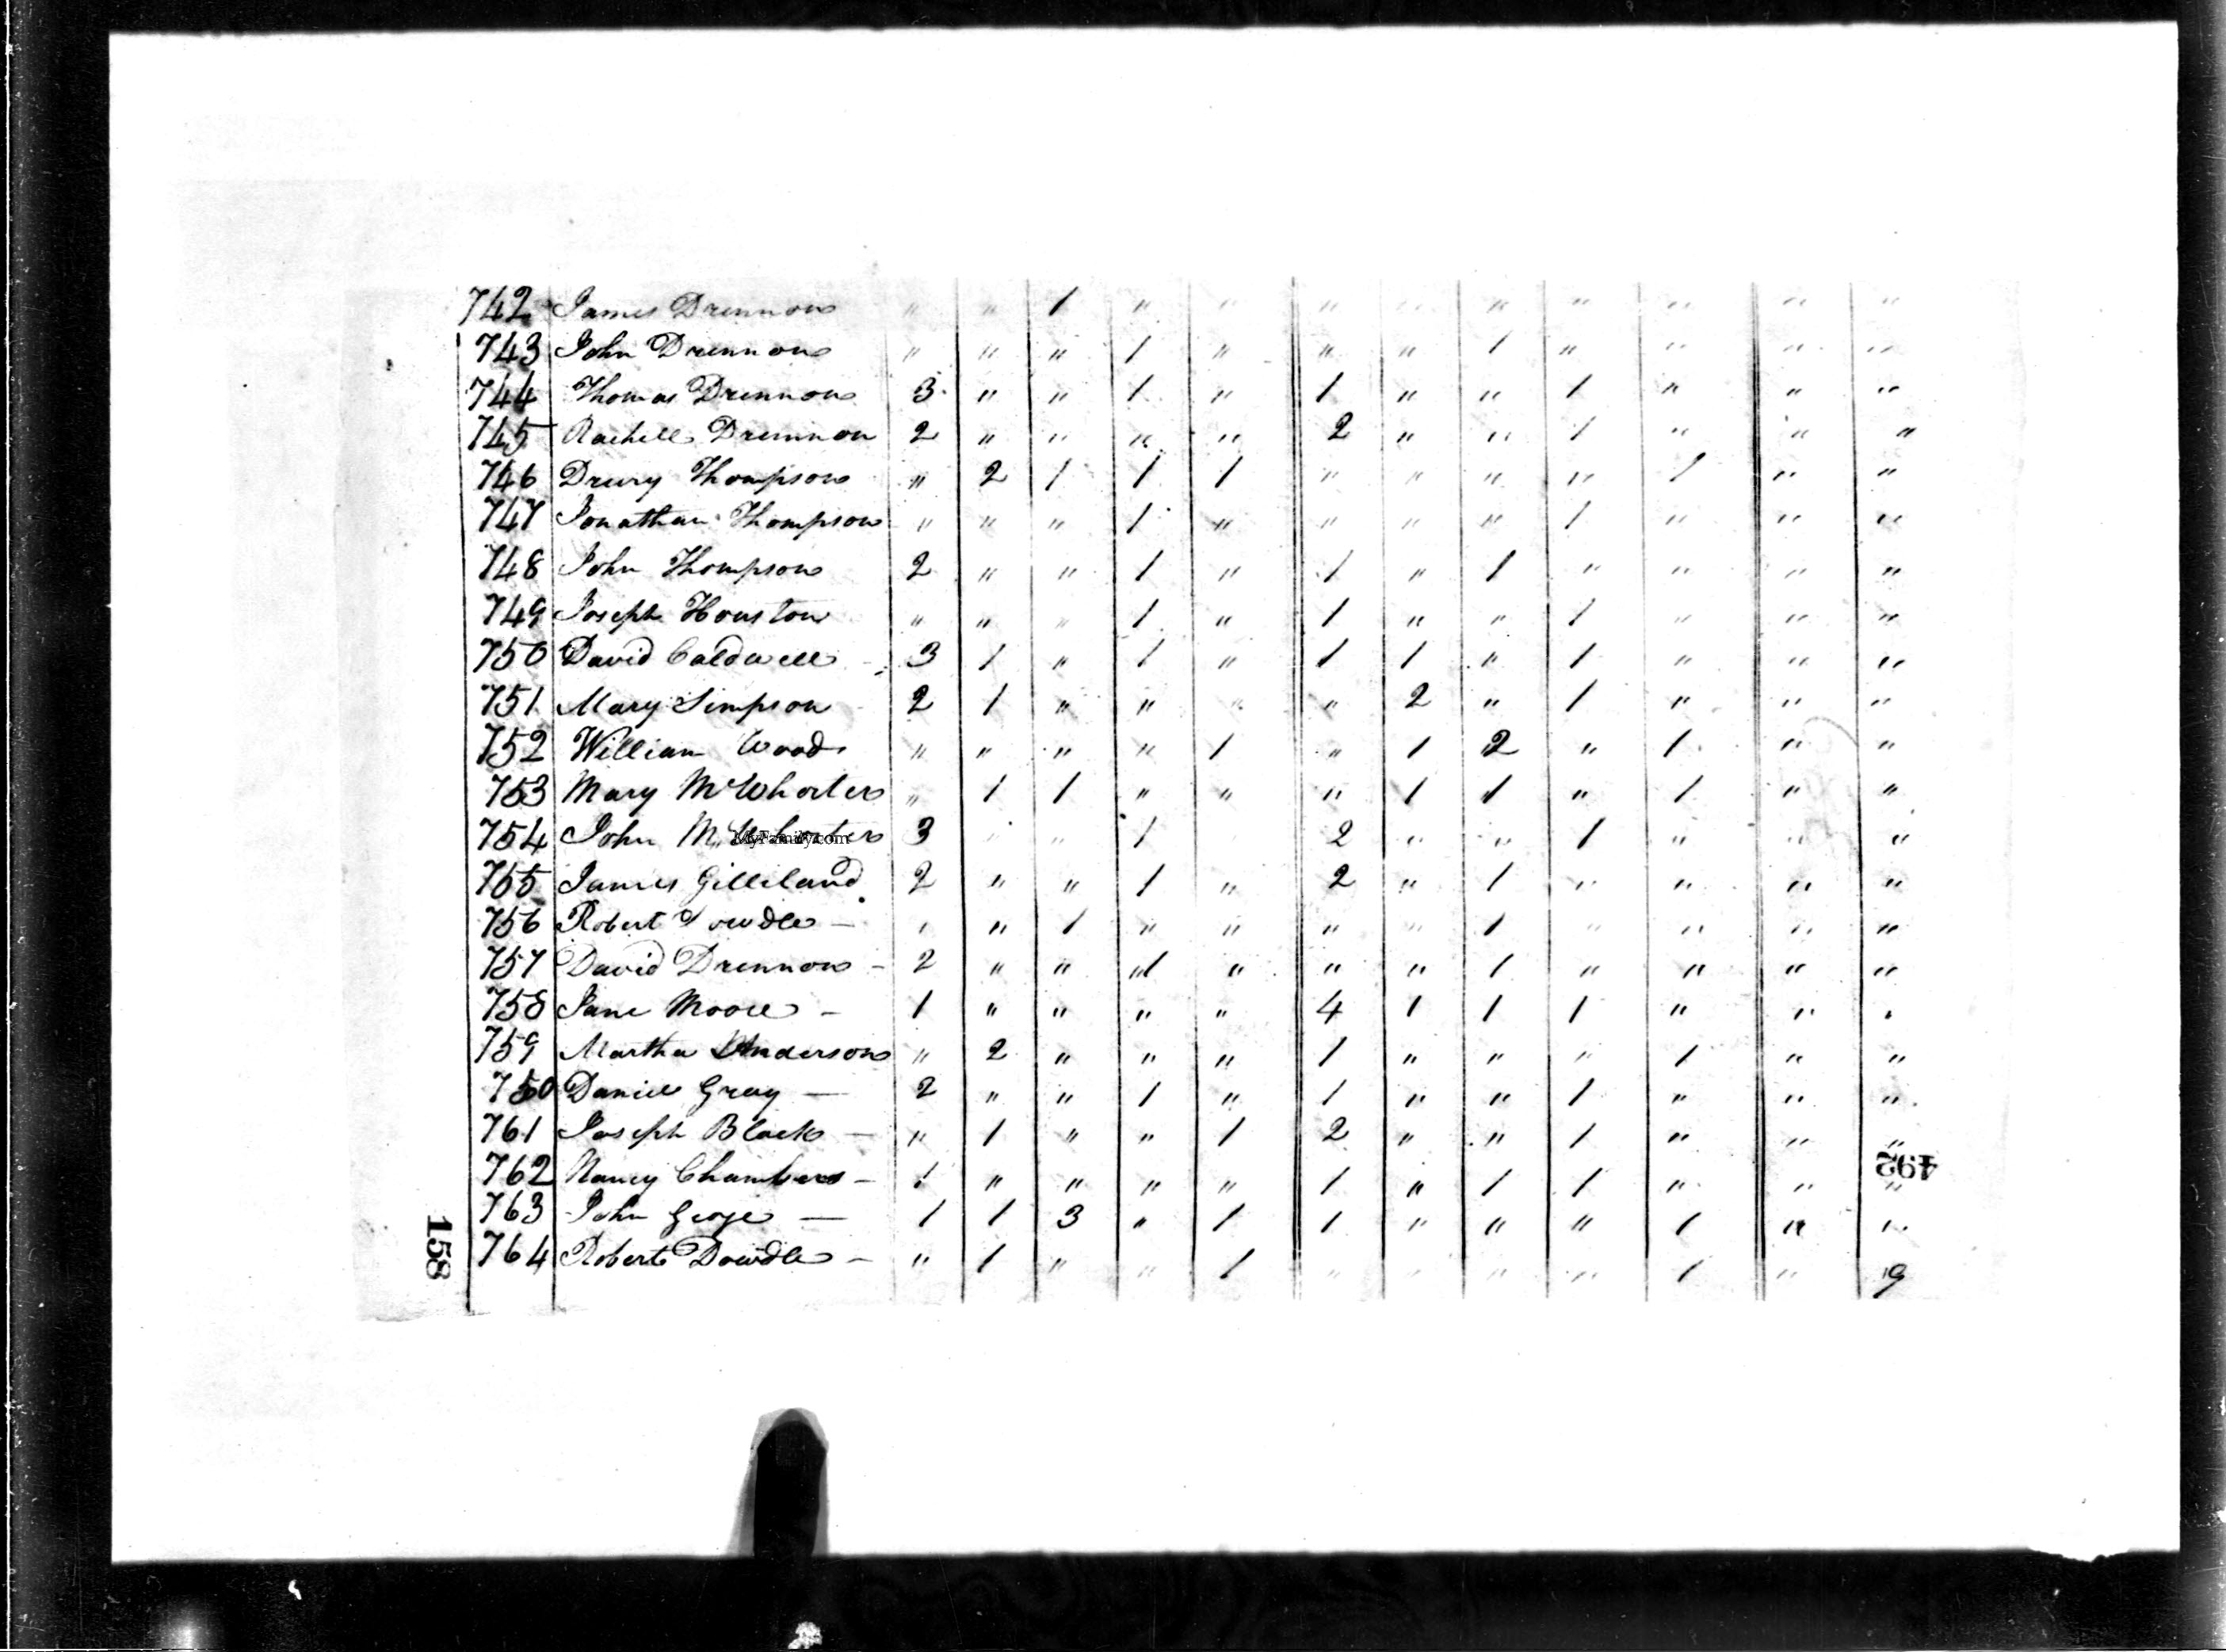 742 James Drennon " " 1 " " " " " " " " "
743 John Drennon " " " 1 " " " 1 " " " "
744 Thomas Drennon 3 " " 1 " 1 " " 1 " " "
745 Rachell Drennon 2 " " " " 2 " " 1 " " "
746 Drury Thompson " 2 1 1 1 " " " " 1 " "
747 Jonathan Thompson " " " 1 " " " " 1 " " "
748 John Thompson 2 " " 1 " 1 " 1 " " " "
749 Joseph Houston " " " 1 " 1 " " 1 " " "
750 David Caldwell 3 1 " 1 " 1 1 " 1 " " "
751 Mary Simpson 2 1 " " " " 2 " 1 " " "
752 William Woods " " " " 1 " 1 2 " 1 " "
753 Mary McWhorter " 1 1 " " " 1 1 " 1 " "
754 John McWhorter 3 " " 1 2 " " 1 " " "
MyFamily.com
755 James Gilleland 2 " " 1 " 2 " 1 " " " "
756 Robert Dowdle — " " 1 " " " " 1 " " " "
757 David Drennon - 2 " " 1 " " " 1 " " " "
758 Jane Moore - 1 " " " " 4 1 1 1 " " "
759 Martha Anderson " 2 " " " 1 " " " 1 " "
750 Daniel Gray — 2 " " 1 " 1 " " 1 " " "
761 Joseph Black — " 1 " " 1 2 " " 1 " " "
762 Nancy Chambers - 1 " " " " 1 " 1 1 " " "
492
763 John — 1 1 3 " 1 1 " " " 1 " "
764 Robert Dowdle - " 1 " " 1 " " " " 1 " 9
158